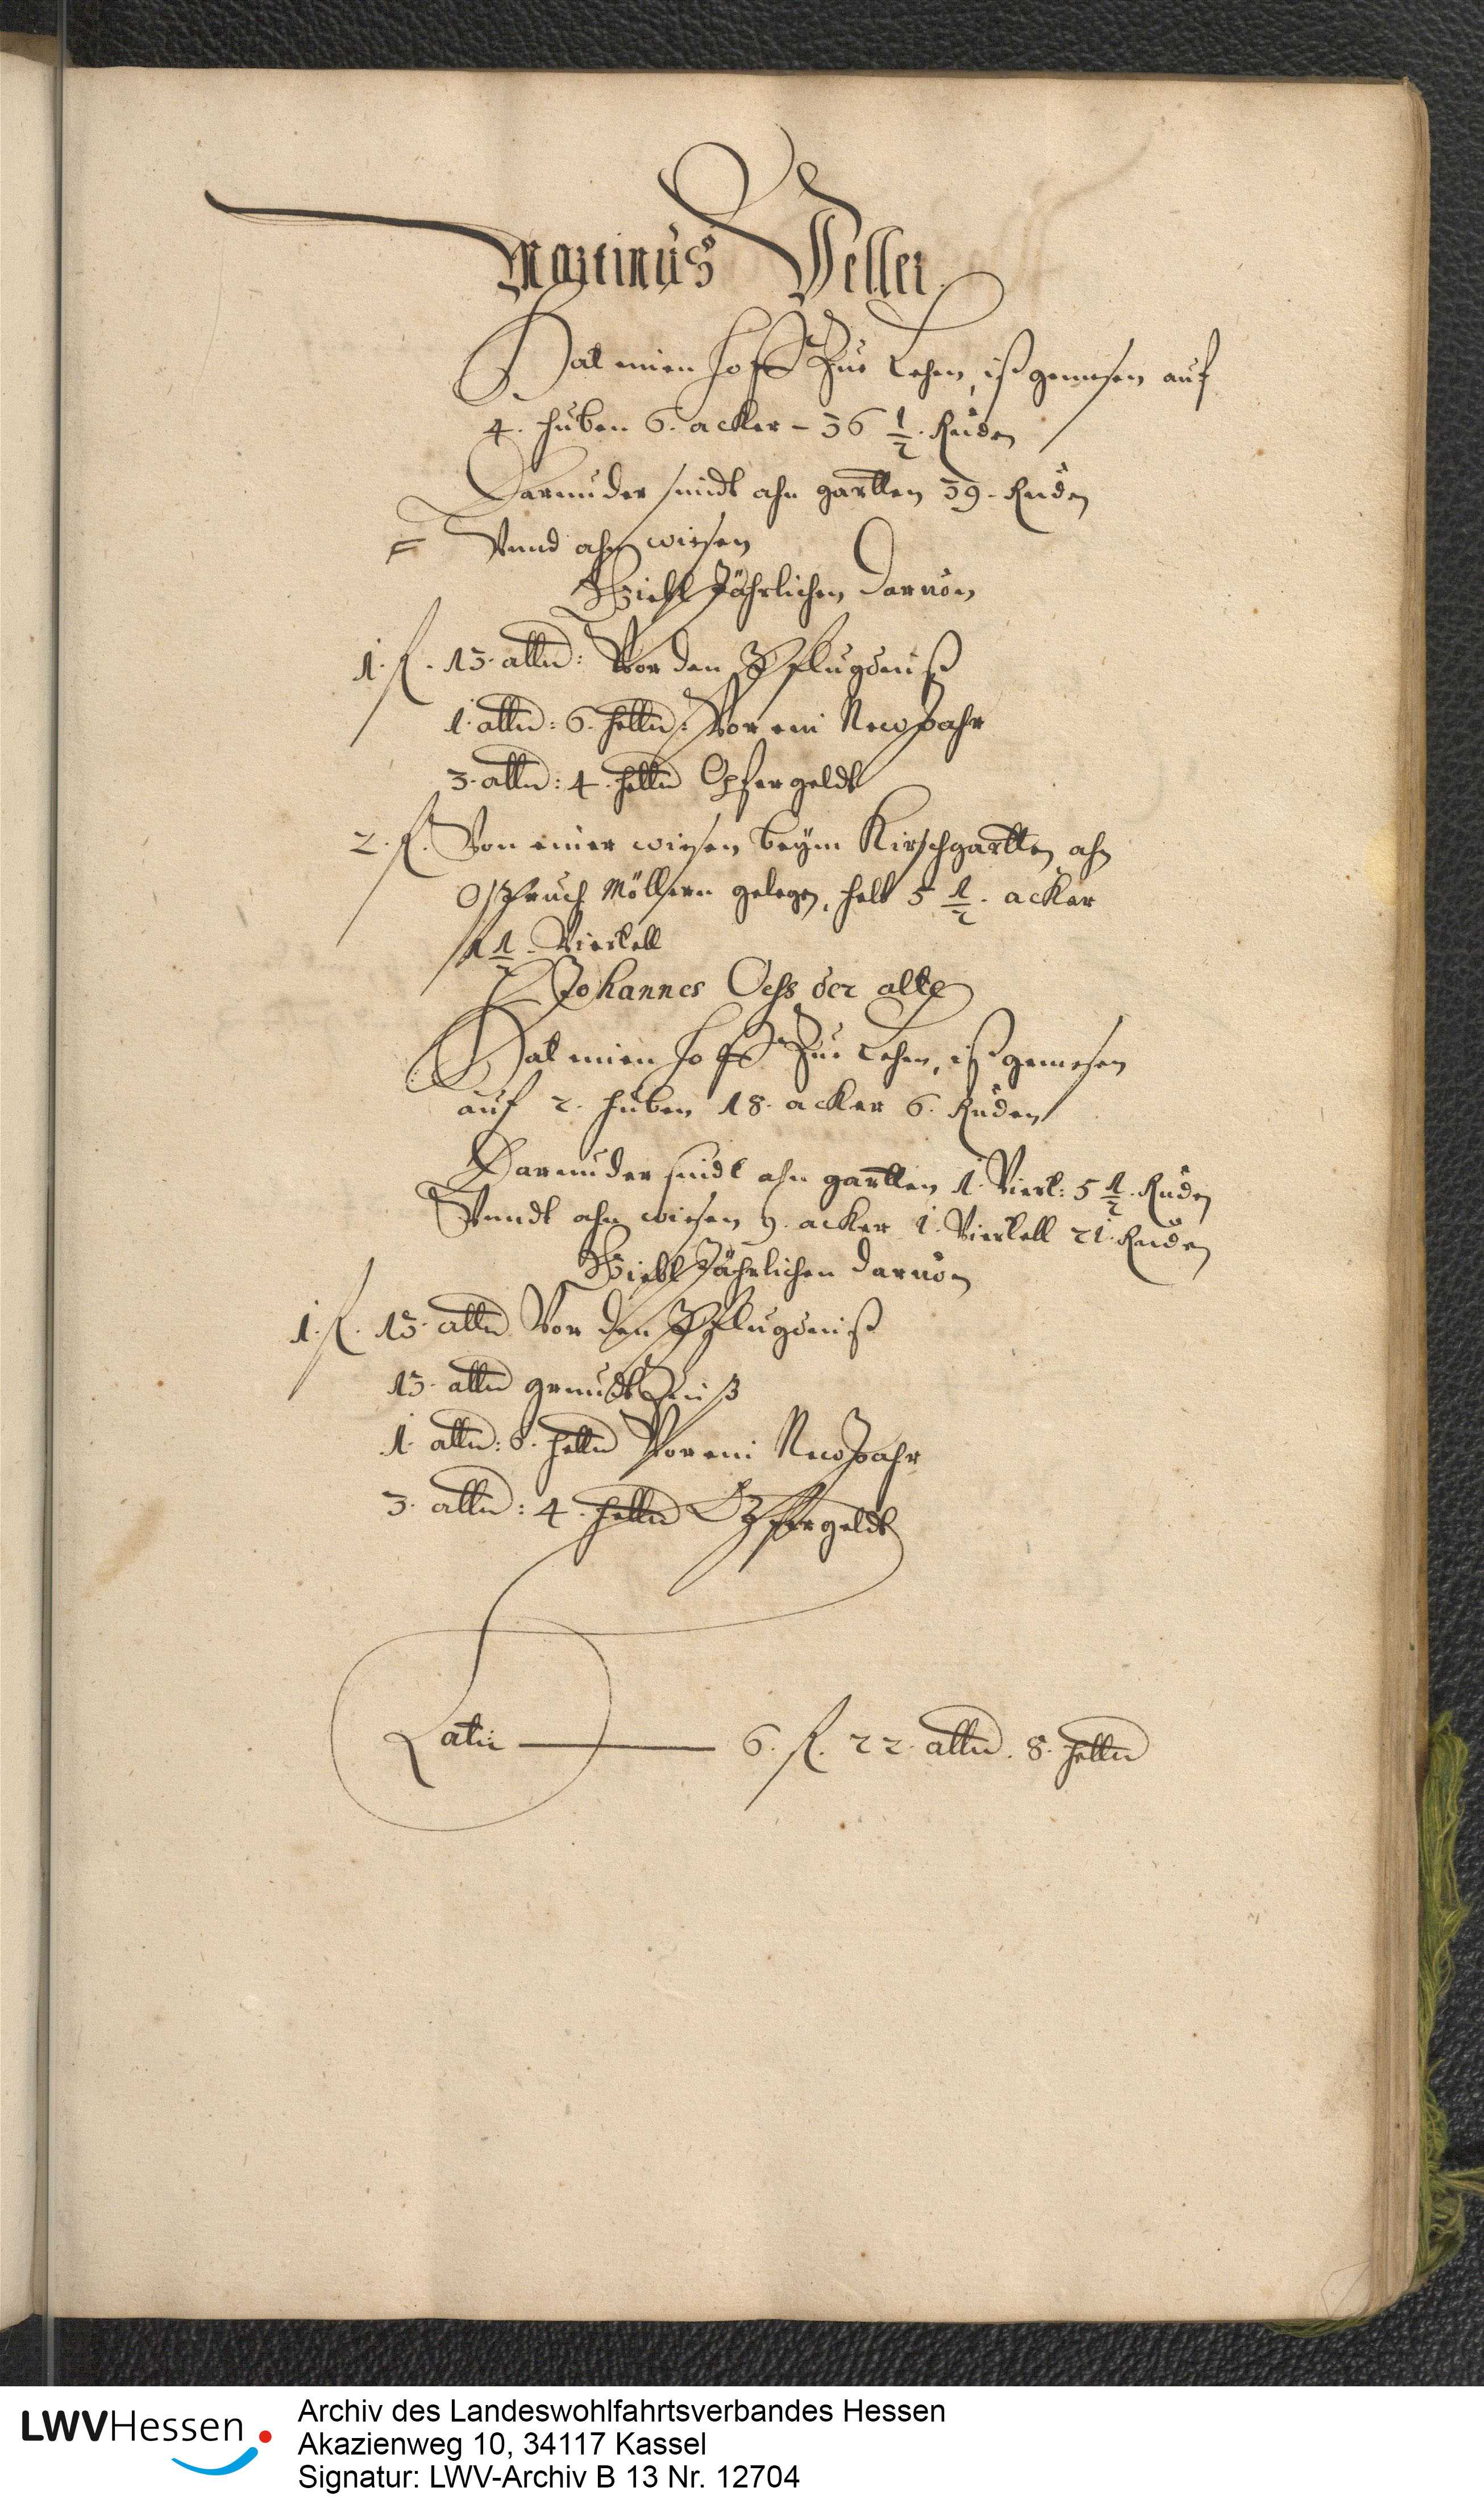 Martinus Veller.
Hat einen Hoff Zue Lehen, ist gemesen auf
4. Huben 6. acker - 36 1/2. Ruden
Darunder seindt ahn gartten 39. Ruden
Vnnd ahn wiesen
Giebt Jährlichen daruon
1. fl. 13. albus: Vor den Pflugdinst
1. albus: 6. heller: Vor ein NewJahr
3. albus: 4. heller Opfergeldt
2. fl. Von einer wiesen beym Kirschgartten ahn
Möllern gelegen, helt 5 1/2. acker
1 1/2. Viertell
Johannes Ochs der alte
Hat einen Hoff Zue Lehen, ist gemesen
auf 2. Huben 18. acker 6. Ruden
Darunder seindt ahn gartten 1. Viert: 5 1/2. Ruden
Vnndt ahn wiesen 9. acker 1. Viertell 21. Ruden
Giebt Jährlichen daruon
1. fl. 13. albus Vor den Pflugdinst
13. albus grundt Zinß
1. albus: 6. heller Vor ein NewJahr
3. albus: 4. heller Opfergeldt
Latus 6. fl. 22. albus. 8. heller
LWVHessen
Archiv des Landeswohlfahrtsverbandes Hessen
Akazienweg 10, 34117 Kassel
Signatur: LWV-Archiv B 13 Nr. 12704